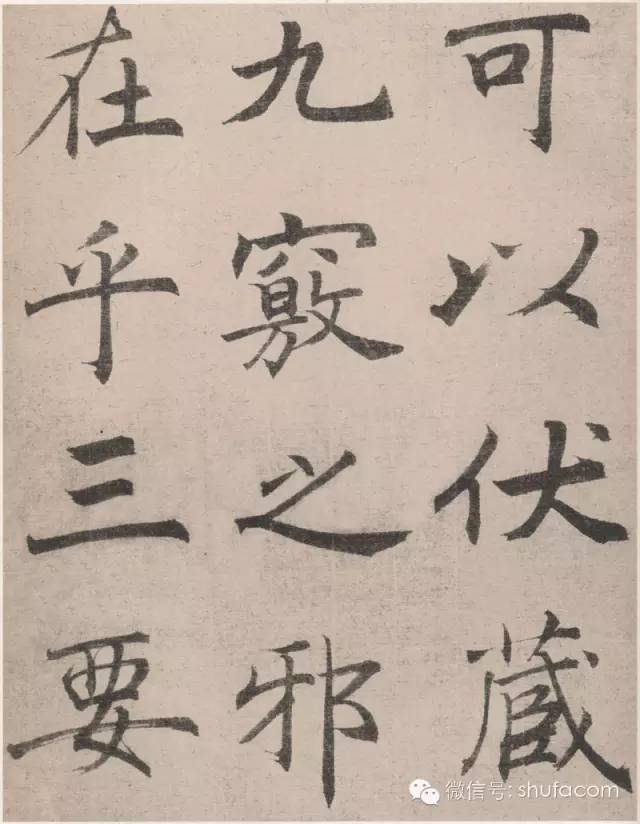 可以伏藏
九竅之邪
在乎三要
微信号: shufacom